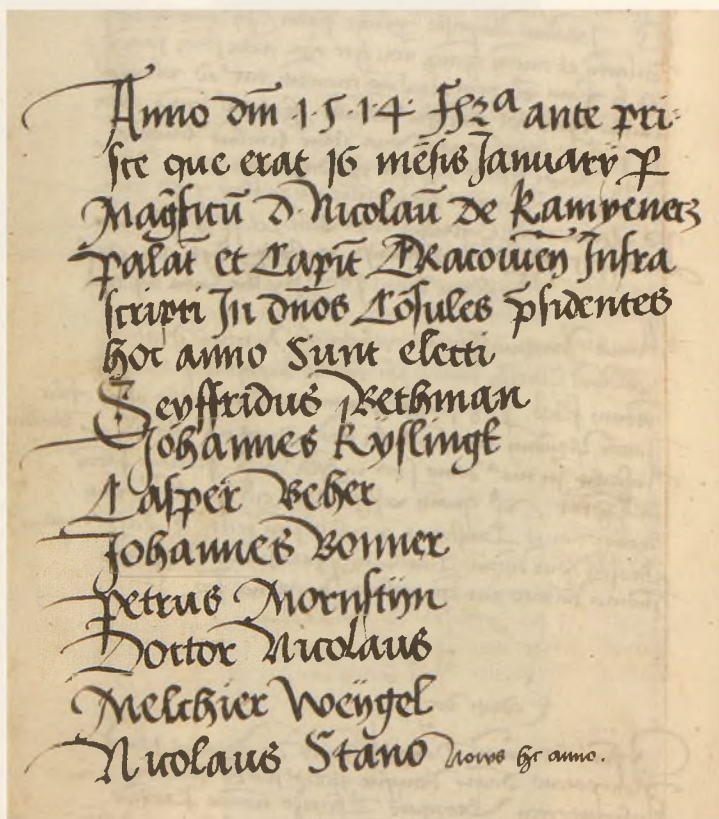 Anno dm̄ ·1·5·1·4· ff 2ª ante pri-
sce que erat 16 mēsis Januarÿ P̱
Mag̃ficū D Nicolaū de Kamyenetz
palat̄ et Capit̄ CRacouien̄ Infra
scripti In dños Cōsules p̄sidentes
hoc anno Sunt electi
Seyffridus Bethman
Johannes Kyslingk
Casper Beher
Johannes Bonner
Petrus Mornstijn
Doctor Nicolaus
Melchier Weÿgel
Nicolaus Stano Nows hc anno.